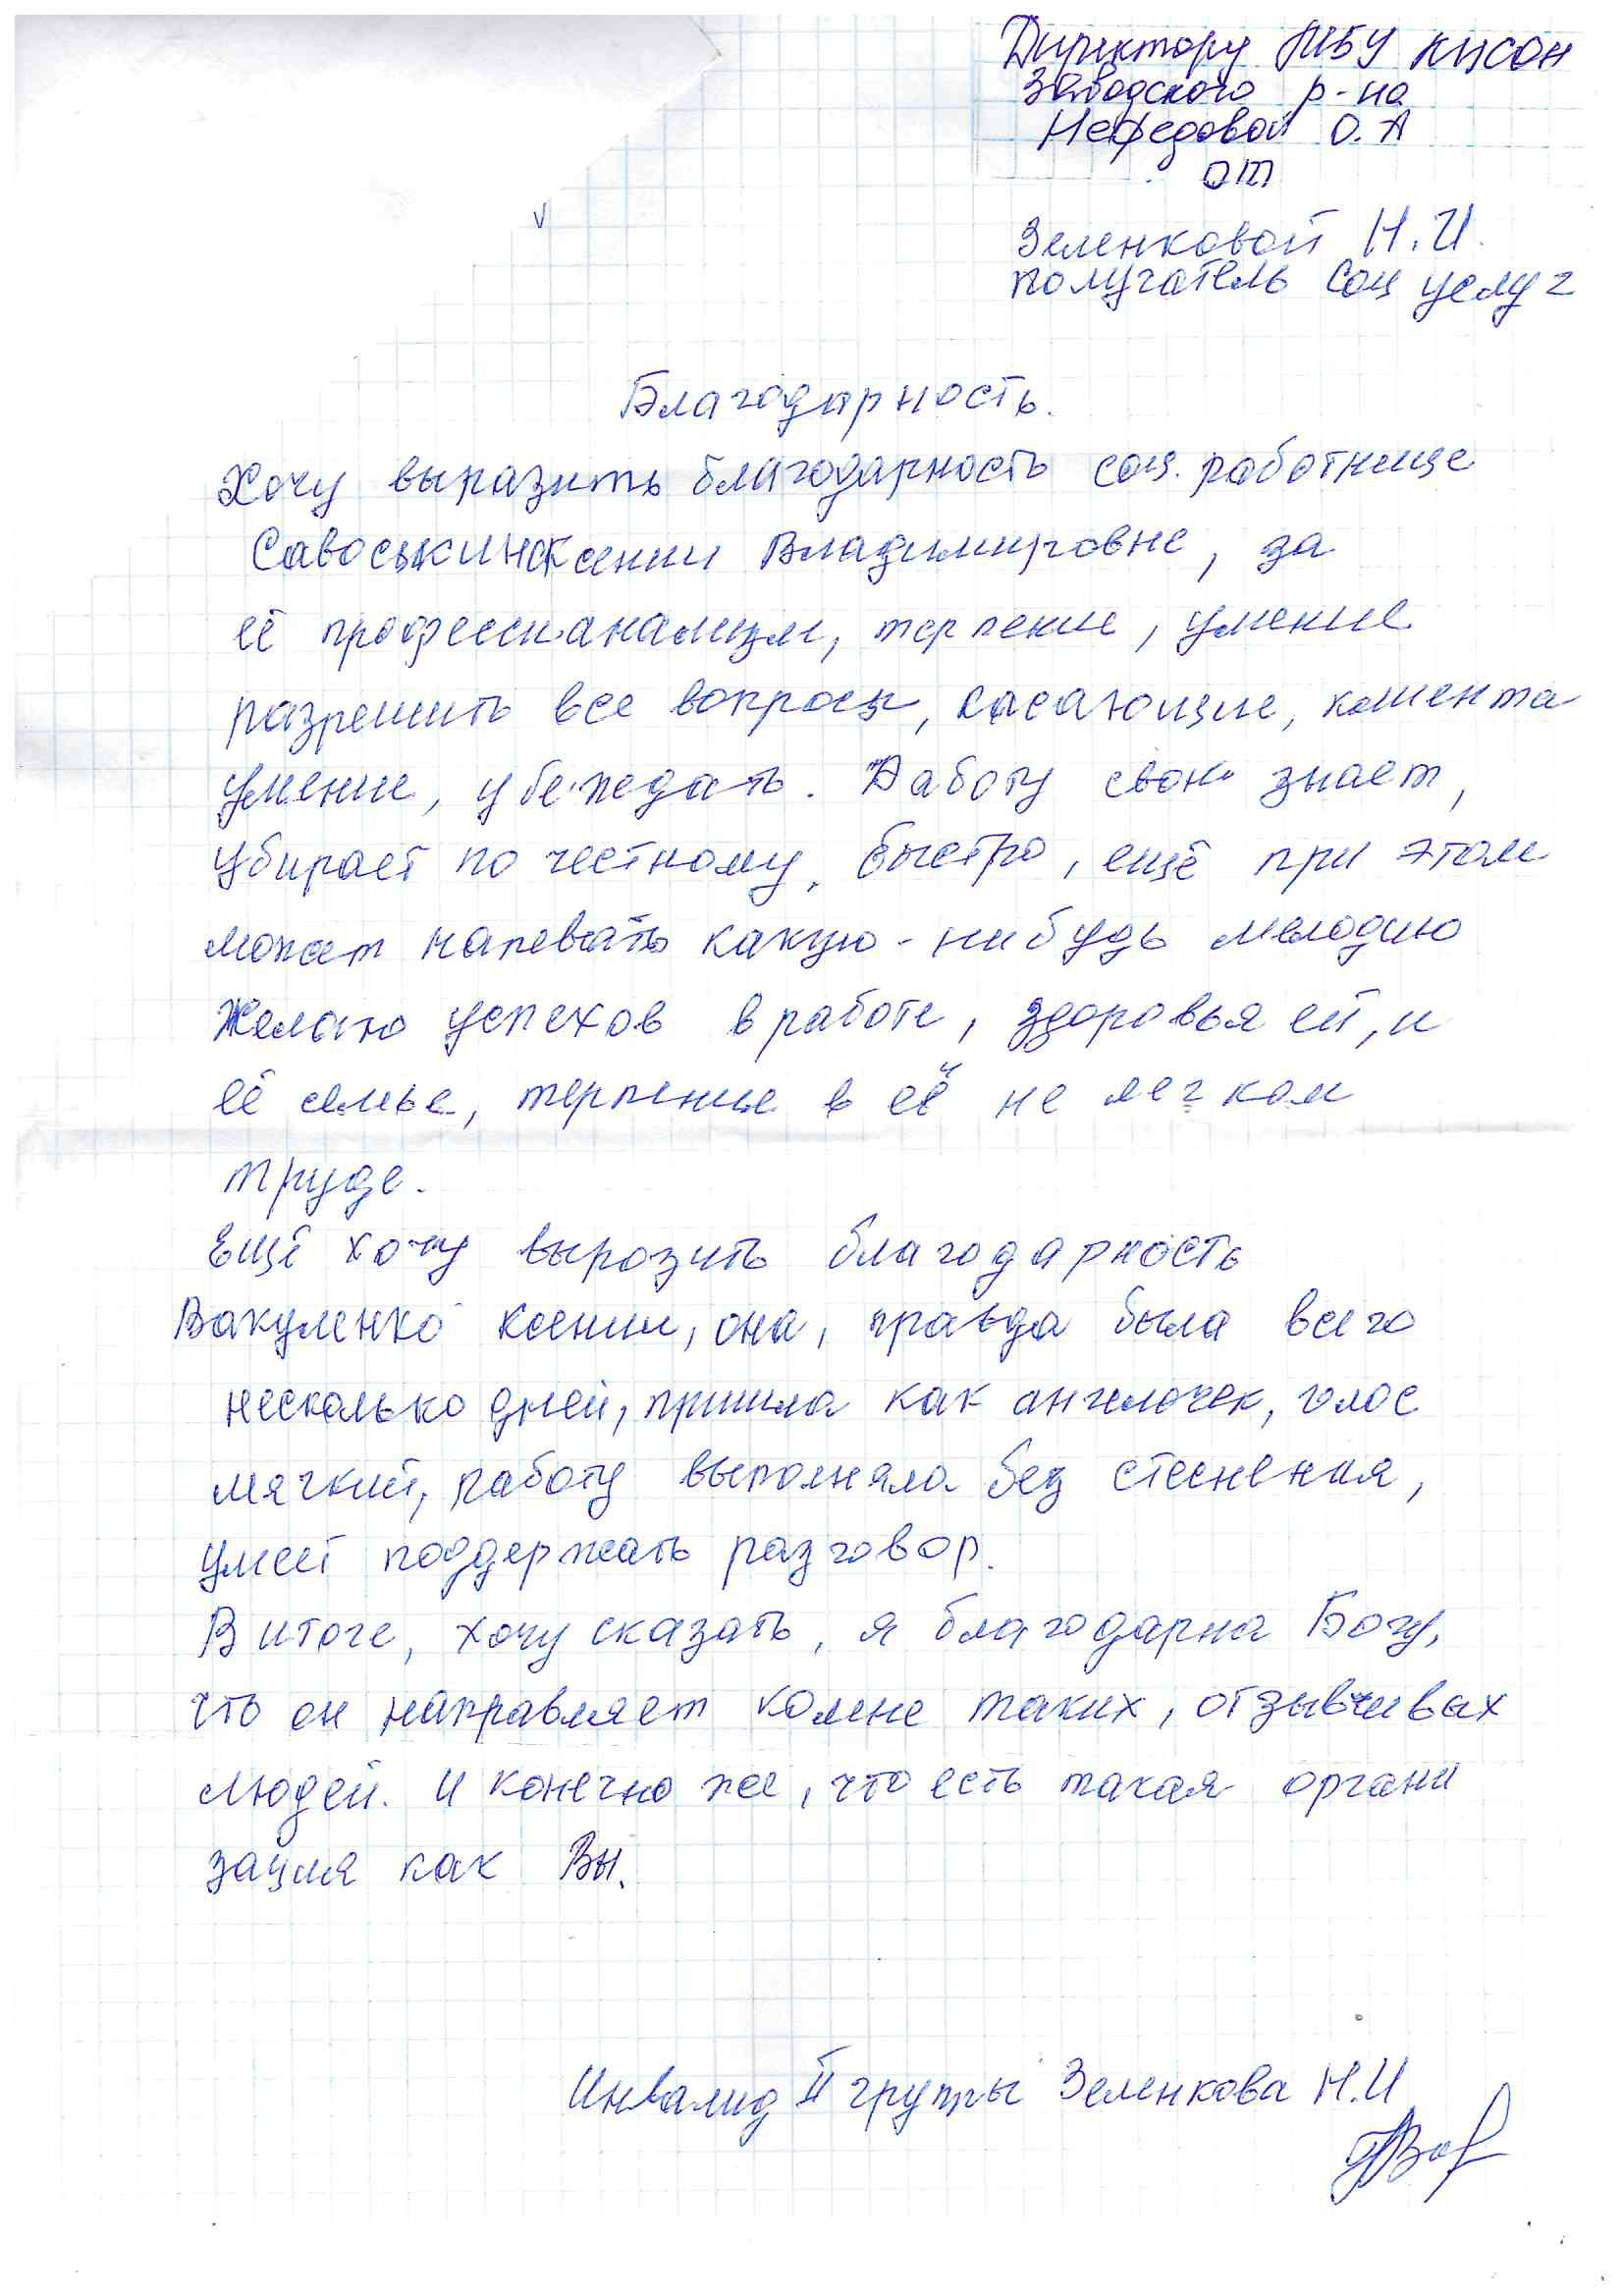 Директору МБУ КЦСОН
Заводского р-на
Нефедовой О.А
от
Зеленковой Н.И.
получатель соц услуг
Благодарность.
Хочу выразить благодарность соц. работнице
Савоськиной Ксении Владимировне, за
её професспанализм, терпение, умение
разрешить все вопросы, касающие, клиента
умение, убеждать. Работу свою знает,
убирает по честному, быстро, ещё при этом
может напевать какую-нибудь мелодию
Желаю успехов в работе, здоровья ей, и
её семье, терпение в её не легком
труде.
Ещё хочу вырозить благодарность
Вакуленко Ксении, она, правда была всего
несколько дней, пришла как ангелочек, голос
мягкий, работу выполняла без стеснения,
умеет поддержать разговор.
В итоге, хочу сказать, я благодарна Богу,
что он направляет комне таких, отзывчивых
людей. И конечно же, что есть такая органи
зация как Вы.
Инвалид II группы Зеленкова Н.И